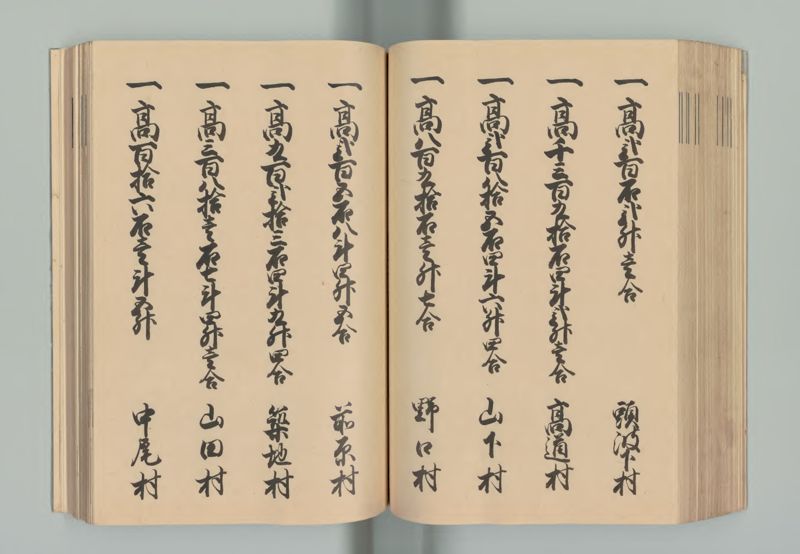 一高弐百石弐升壱合 頭波下村
一高千三百九拾石四斗弐升壱合 高道村
一高弐百八拾五石四斗六升四合 山下村
一高八百九拾石壱升七合 野口村
一高弐百五石八斗四升五合 前原村
一高九百弐拾三石四斗九升四合 築地村
一高三百八拾壱石七斗四升壱合 山田村
一高百拾六石壱斗五升 中尾村